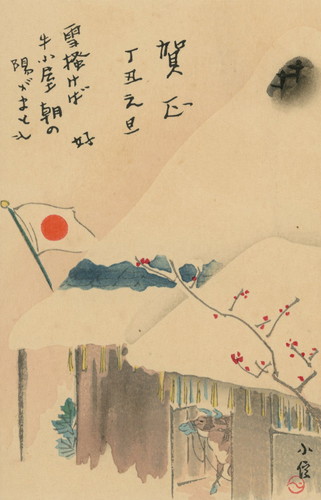 賀正
丁丑元旦
雪掻けば
牛小屋朝の
陽がま
好
小信